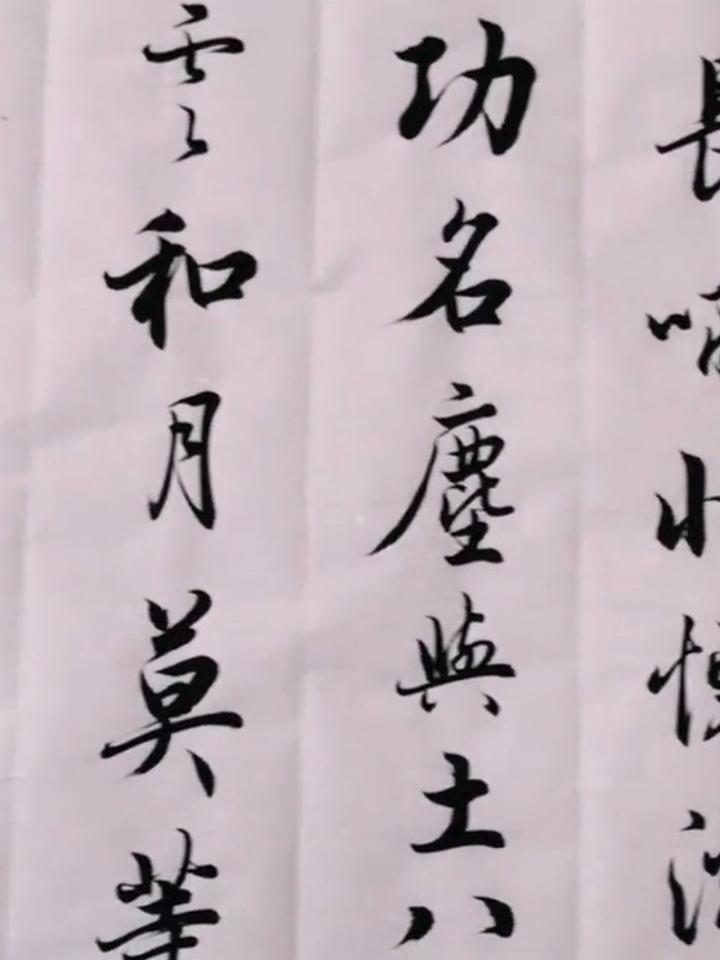 長嘯壯懷激
功名塵與土八
雲和月莫等